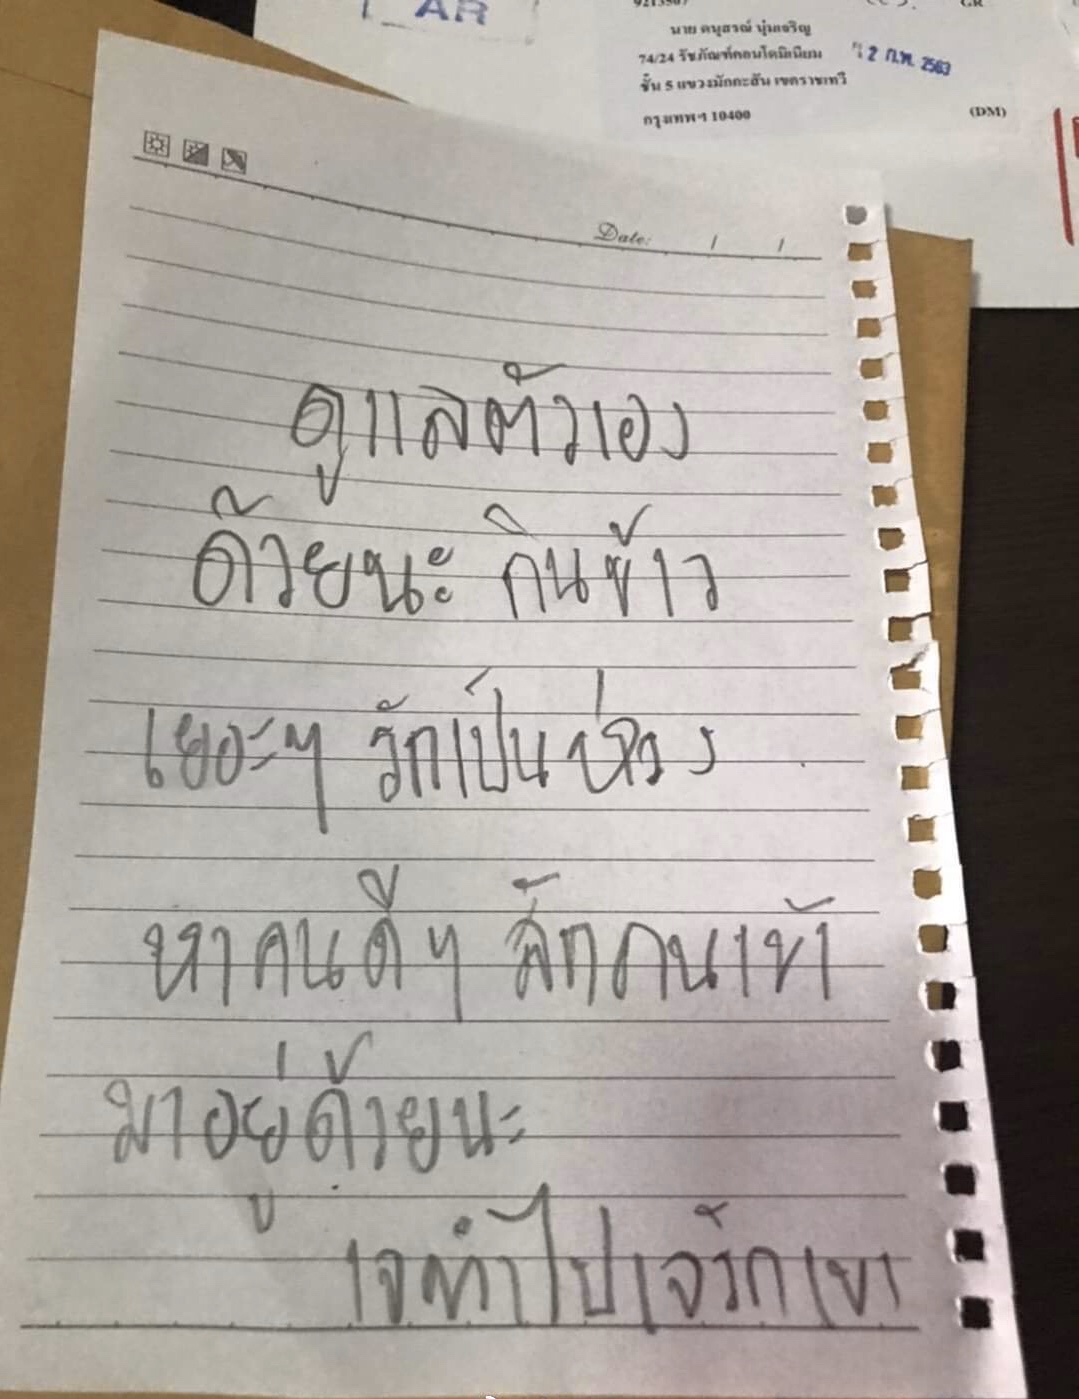 AR
นาย ดนุสรณ์ นุ่มเจริญ
74/24 รัชภัณฑ์คอนโดมิเนียม
2 ก.พ. 2563
ชั้น 5 แขวงมักกะสัน เขตราชเทวี
กรุงเทพฯ 10400
(DM)
Date: / /
ดูแลตัวเอง
ด้วยนะ กินข้าว
เยอะๆ รักเป็นห่วง
หาคนดีๆ สักคนเข้า
มาอยู่ด้วยนะ